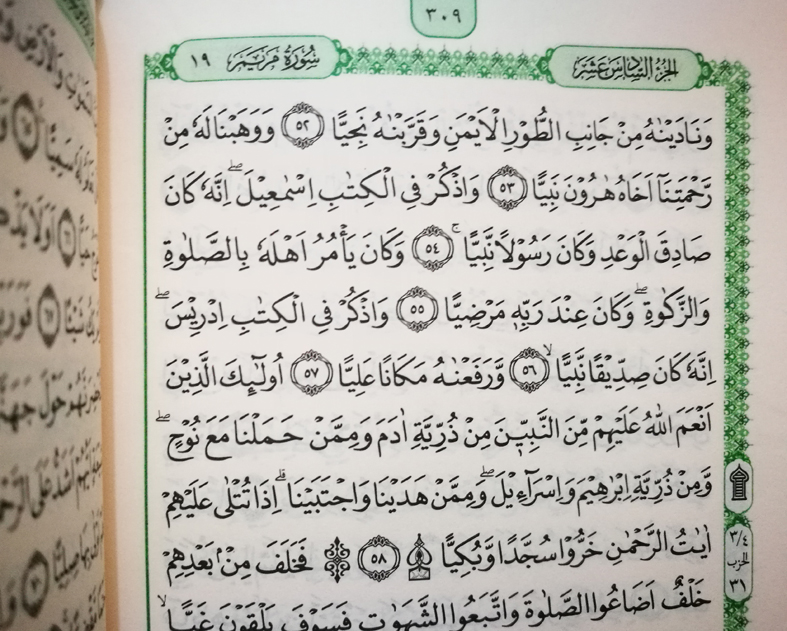 ٣٠٩
الجزء السادس عشر
سورة مريم ١٩
وَنَادَيْنٰهُ مِنْ جَانِبِ الطُّوْرِ الْاَيْمَنِ وَقَرَّبْنٰهُ نَجِيًّا ٥٢ وَوَهَبْنَا لَهٗ مِنْ
رَّحْمَتِنَآ اَخَاهُ هٰرُوْنَ نَبِيًّا ٥٣ وَاذْكُرْ فِى الْكِتٰبِ اِسْمٰعِيْلَ ۖ اِنَّهٗ كَانَ
صَادِقَ الْوَعْدِ وَكَانَ رَسُوْلًا نَّبِيًّا ۚ ٥٤ وَكَانَ يَأْمُرُ اَهْلَهٗ بِالصَّلٰوةِ
وَالزَّكٰوةِ ۖ وَكَانَ عِنْدَ رَبِّهٖ مَرْضِيًّا ٥٥ وَاذْكُرْ فِى الْكِتٰبِ اِدْرِيْسَ ۖ
اِنَّهٗ كَانَ صِدِّيْقًا نَّبِيًّا ۙ ٥٦ وَّرَفَعْنٰهُ مَكَانًا عَلِيًّا ٥٧ اُولٰۤىِٕكَ الَّذِيْنَ
اَنْعَمَ اللّٰهُ عَلَيْهِمْ مِّنَ النَّبِيّٖنَ مِنْ ذُرِّيَّةِ اٰدَمَ وَمِمَّنْ حَمَلْنَا مَعَ نُوْحٍ ۖ
وَّمِنْ ذُرِّيَّةِ اِبْرٰهِيْمَ وَاِسْرَاۤءِيْلَ ۖ وَمِمَّنْ هَدَيْنَا وَاجْتَبَيْنَا ۗ اِذَا تُتْلٰى عَلَيْهِمْ
اٰيٰتُ الرَّحْمٰنِ خَرُّوْا سُجَّدًا وَّبُكِيًّا ۩ ٥٨ فَخَلَفَ مِنْۢ بَعْدِهِمْ
خَلْفٌ اَضَاعُوا الصَّلٰوةَ وَاتَّبَعُوا الشَّهَوٰتِ فَسَوْفَ يَلْقَوْنَ غَيًّا ۙ
٣/٤
الحزب
٣١